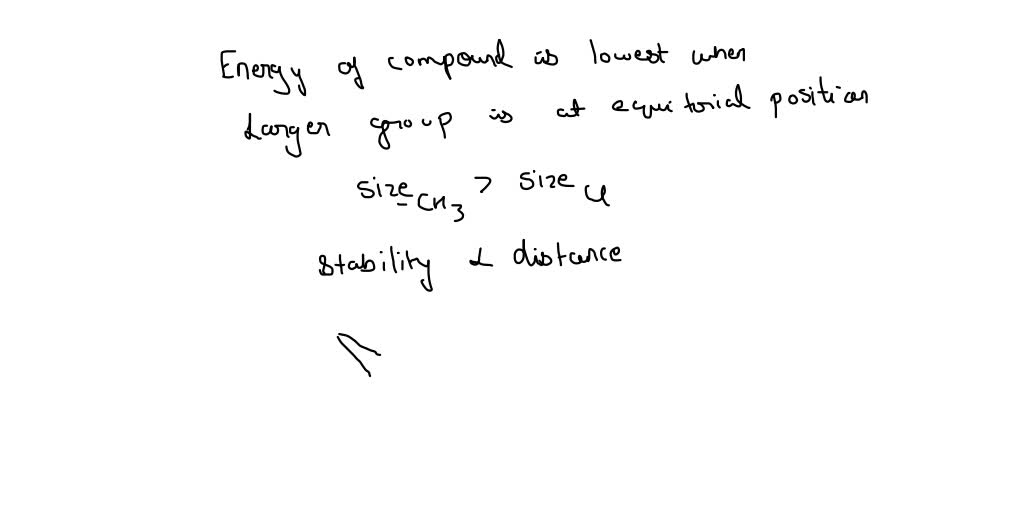 Energy of compound is lowest when
Larger group is at equitorial position
size CH3 > size Cl
stability α distance